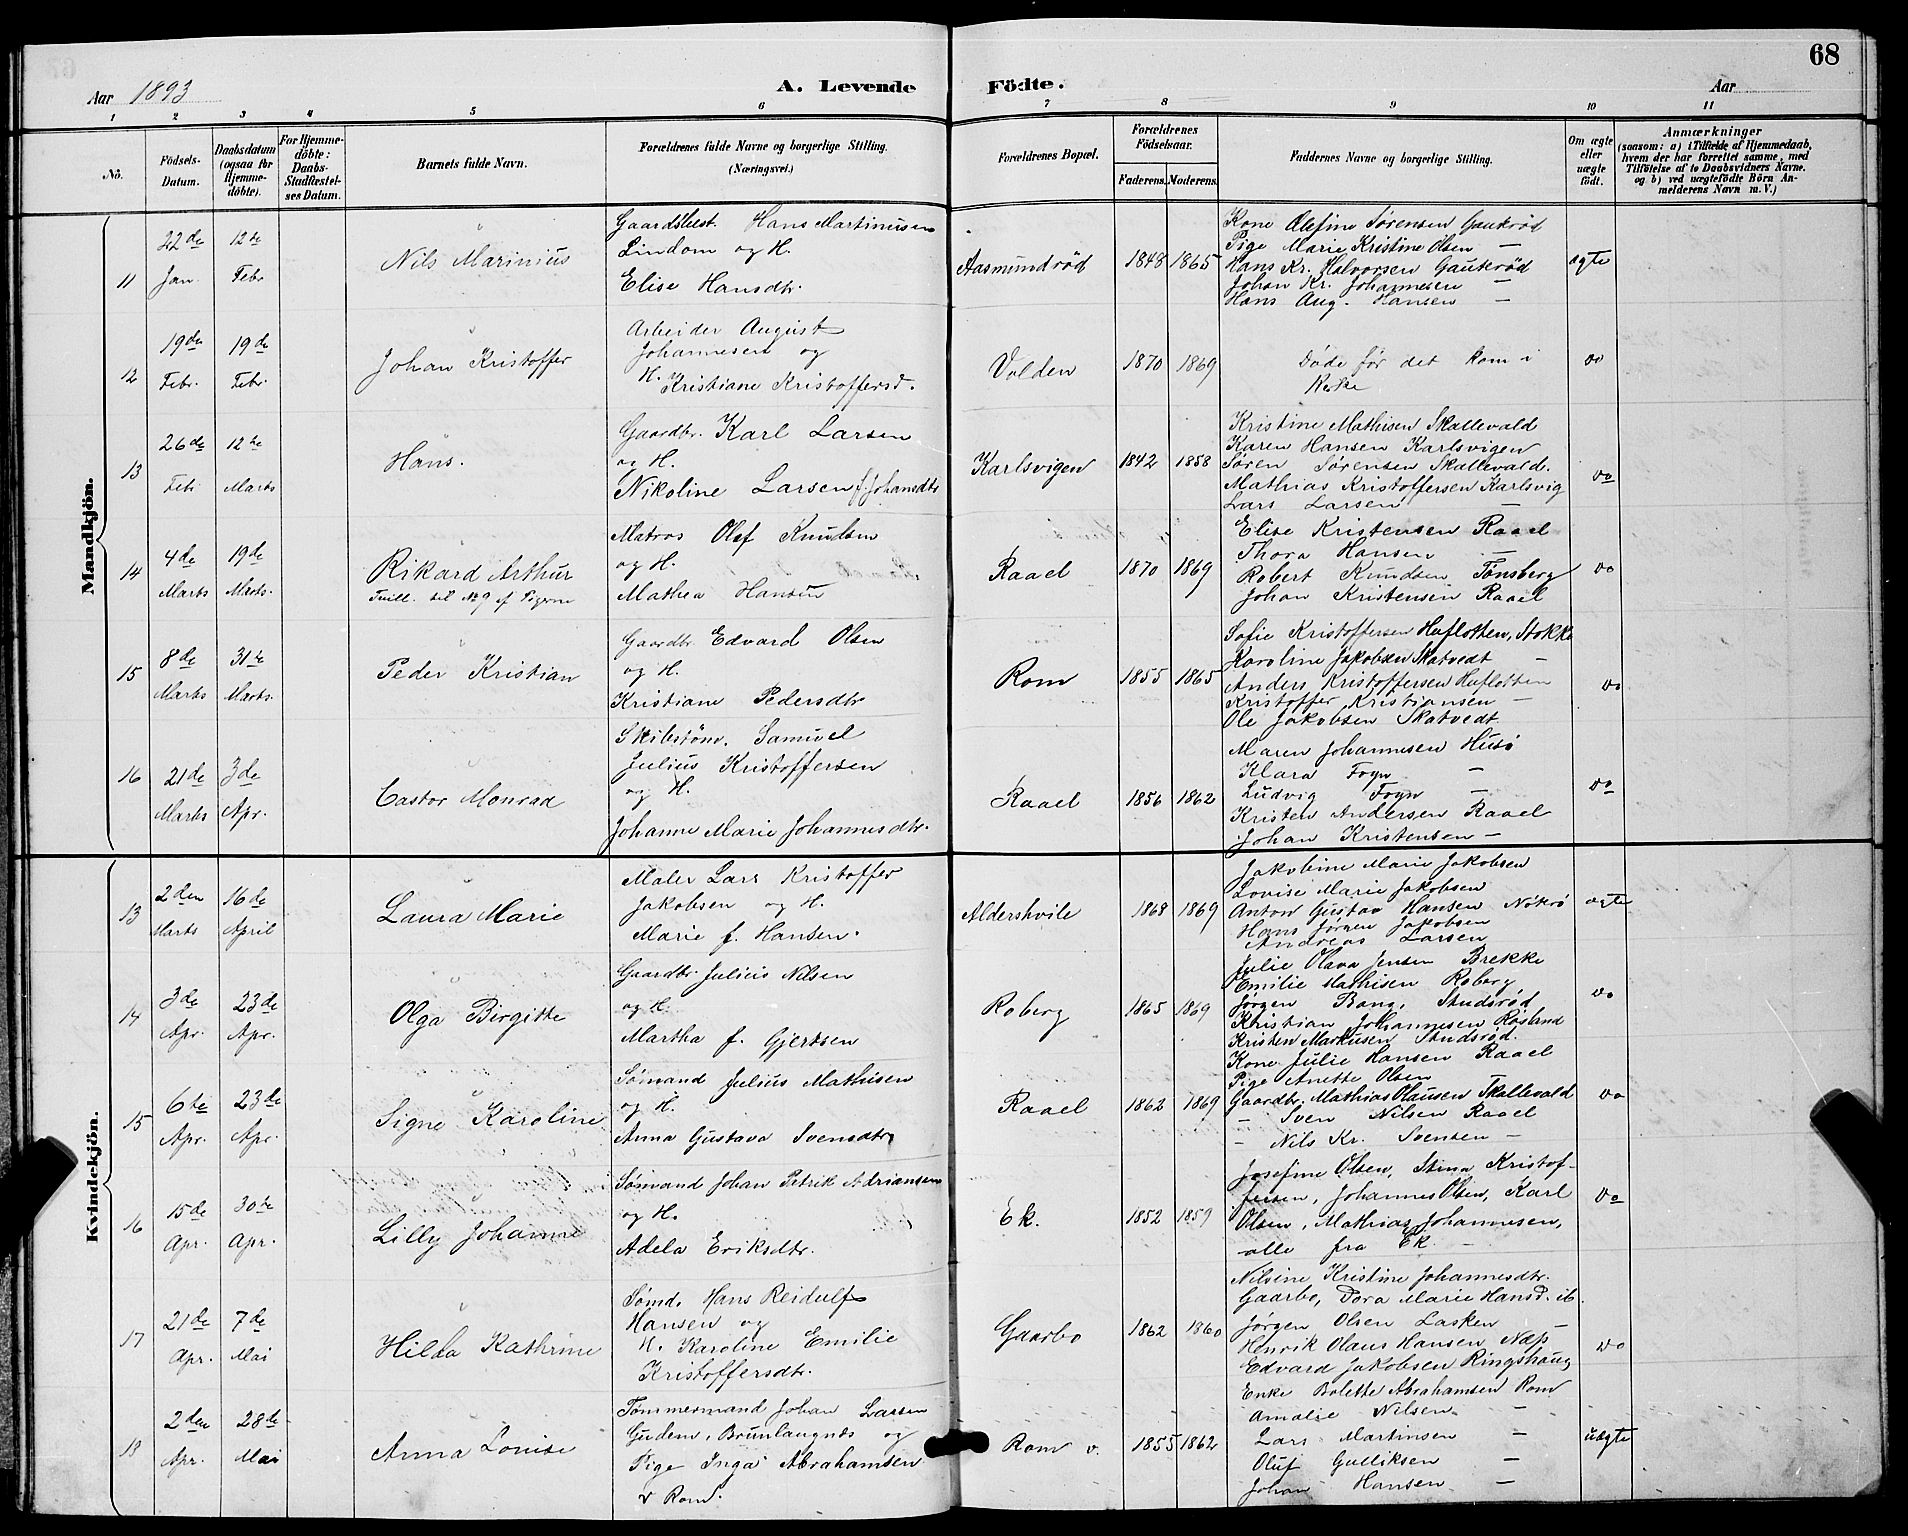 68
Aar 1893
A. Levende
Födte.
Aar
1 2 3 4 5 6 7 8 9 10 11
No.
Födsels-Datum.
Daabsdatum (ogsaa for Hjemmedöbte).
For Hjemmedöbte: Daabs-Stadfæstelses Datum.
Barnets fulde Navn.
Forældrenes fulde Navne og borgerlige Stilling.
(Næringsvei.)
Forældrenes Bopæl.
Forældrenes Födselsaar.
Faderens. Moderens.
Faddernes Navne og borgerlige Stilling.
Om ægte eller uægte födt.
Anmærkninger
(saasom: a) i Tilfælde af Hjemmedaab,
hvem der har forrettet samme, med
Tilföielse af to Daabsvidners Navne.
og b) ved uægtefödte Börn Anmelderens Navn m. V.)
Mandkjön.
11
22de Jan.
12te Febr
Nils Marinius
Gaardsbest. Hans Martinusen
Lindom og H.
Elise Hansdtr.
Aasmundrød
1848 1865
Kone Olefine Sørensen Gaukrød
Pige Marie Kristine Olsen —
Hans Kr. Halvorsen Gaukrød
Johan Kr. Johannesen —
Hans Aug. Hansen —
ægte
12
19de Febr.
19de Febr.
Johan Kristoffer
Arbeider August
Johannesen og
H. Kristiane Kristoffersd.
Volden
1870 1869
Døde før det kom i
Kirke
do
13
26de Feb
12te Marts
Hans.
Gaardbr. Karl Larsen
og H.
Nikoline Larsen f. Johansdtr
Karlsvigen
1842 1858
Kristine Mathisen Skallevald
Karen Hansen Karlsvigen
Søren Sørensen Skallevald.
Mathias Kristoffersen Karlsvig
Lars Larsen —
do
14
4de Marts
19de Marts.
Rikard Arthur
Tvill. til No 9 af Pigerne
Matros Olaf Knudsen
og H.
Mathea Hansen
Raael
1870 1869
Elise Kristensen Raael
Thora Hansen —
Robert Knudsen Tønsberg
Johan Kristensen Raael
do
15
8de Marts
31te Marts.
Peder Kristian
Gaardbr Edvard Olsen
og H.
Kristiane Pedersdtr
Rom
1855 1865
Sofie Kristoffersen Huflotten, Stokke
Karoline Jakobsen Skatvedt —
Anders Kristoffersen Huflotten
Kristoffer Kristiansen —
Ole Jakobsen Skatvedt
do
16
21de Marts
3de Apr.
Castor Monrad
Skibstøm. Samuel
Julius Kristoffersen
og H.
Johanne Marie Johannesdtr.
Raael
1856 1862
Maren Johannesen Husø
Klara Foyn —
Ludvig Foyn —
Kristen Andersen Raael
Johan Kristensen —
do
Kvindekjön.
13
2den Marts
16de April
Laura Marie
Maler Lars Kristoffer
Jakobsen og H.
Marie f. Hansen.
Aldershvile
1868 1869
Jakobine Marie Jakobsen
Lovise Marie Jakobsen
Anton Gustav Hansen
Hans Jørgen Jakobsen
Andreas Larsen
ægte
14
3de Apr.
23de Apr.
Olga Birgitte
Gaardbr. Julius Nilsen
og H.
Martha f. Gjertsen
Roberg
1865 1869
Julie Olava Jensen Brekke
Emilie Mathisen Roberg
Jørgen Bang, Studsrød
Kristian Johannesen Røsland
Kristen Markusen Studsrød.
do
15
6te Apr.
23de Apr.
Signe Karoline
Sømand Julius Mathisen
og H.
Anna Gustava Svensdtr.
Raael
1862 1869
Kone Julie Hansen Raael
Pige Anette Olsen
Gaardbr. Mathias Olausen Skallevald
— Sven Nilsen Raael
— Nils Kr. Svensen —
do
16
15de Apr.
30te Apr.
Lilly Johanne
Sømand Johan Petrik Adriansen
og H.
Adela Eriksdtr.
Ek.
1852 1859
Josefine Olsen, Stina Kristof-
fersen, Johannes Olsen, Karl
Olsen, Mathias Johannesen,
alle fra Ek.
do
17
21de Apr.
7de Mai
Hilda Kathrine
Sømd. Hans Reidulf
Hansen og
H. Karoline Emilie
Kristoffersdtr.
Gaarbo
1862 1860
Nilsine Kristine Johannesdtr.
Gaarbo, Dora Marie Hansd. ib.
Jørgen Olsen Lasken —
Henrik Olaus Hansen Næs
Edvard Jakobsen Ringshaug
do
18
2den Apr.
28de Mai
Anna Louise
Tømmermand Johan Larsen
Gudem, Brunlaugnæs og
Pige Inga Abrahamsen
v Rom.
Rom v.
1855 1862
Enke Bolette Abrahamsen Rom
Amalie Nilsen —
Lars Martinsen —
Oluf Gulliksen —
Johan Hansen —
uægte